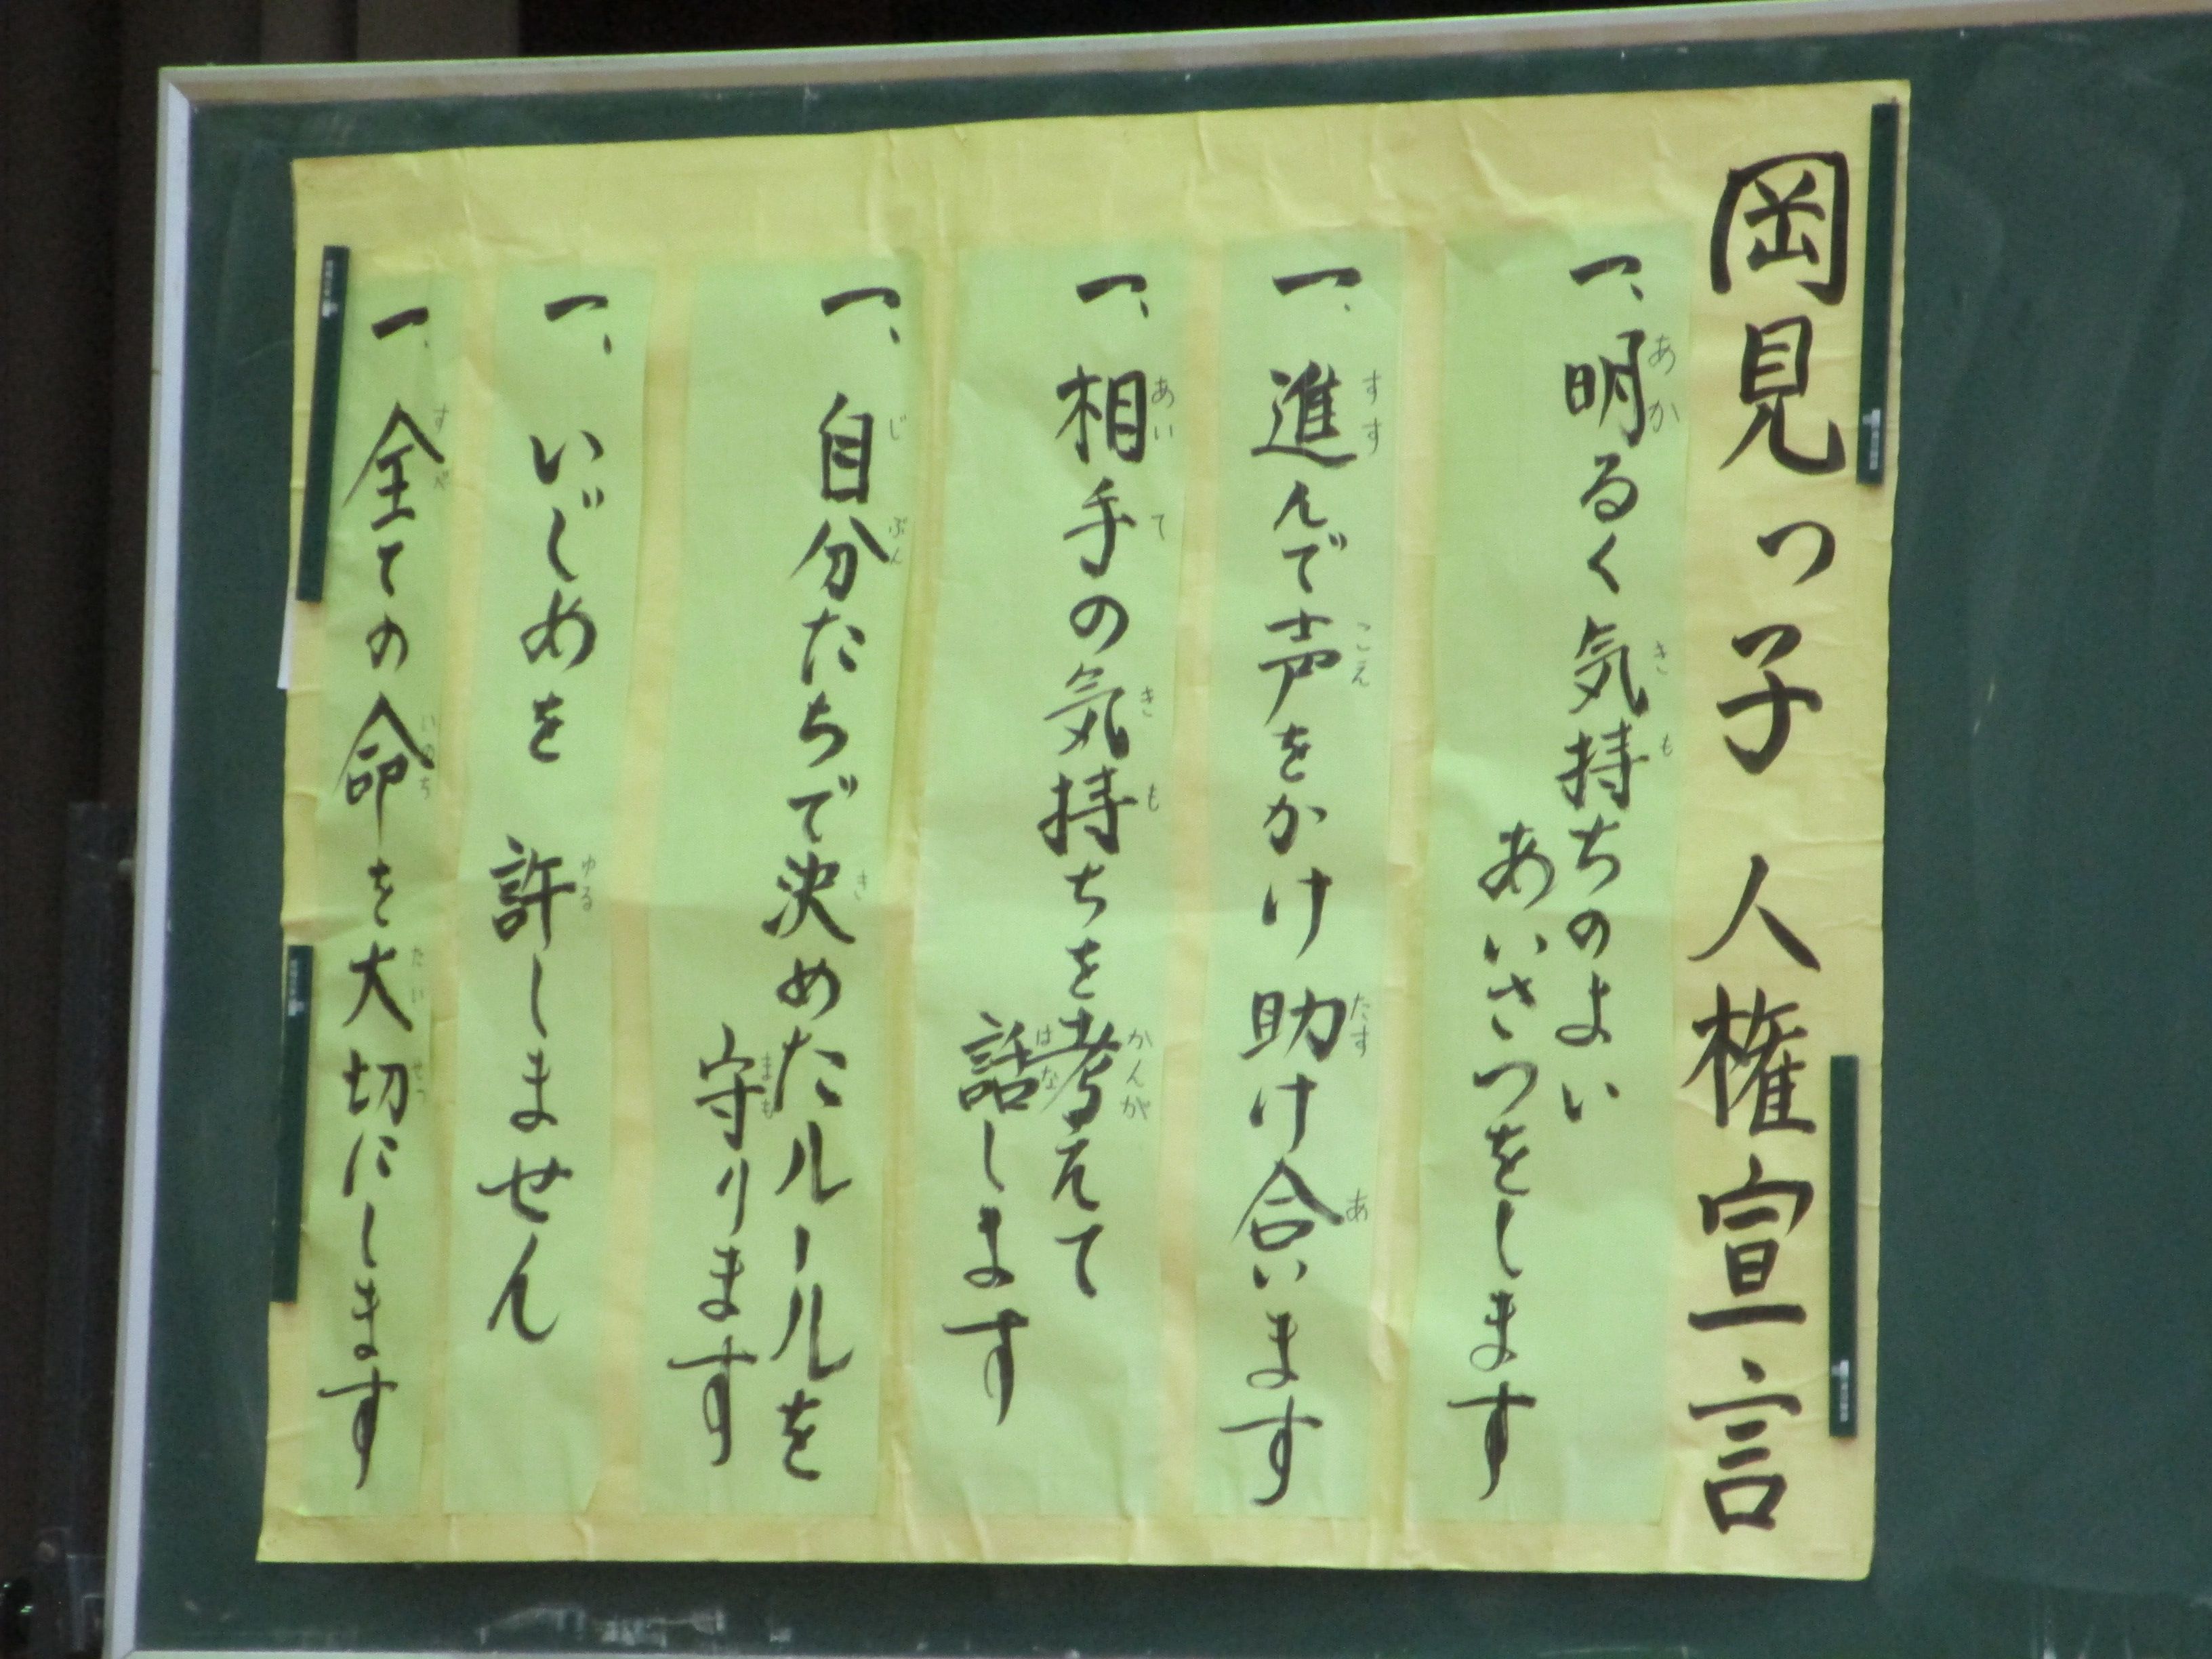 岡見っ子 人権宣言
一、明るく気持ちのよい
あいさつをします
一、進んで声をかけ助け合います
一、相手の気持ちを考えて
話します
一、自分たちで決めたルールを
守ります
一、いじめを許しません
一、全ての命を大切にします